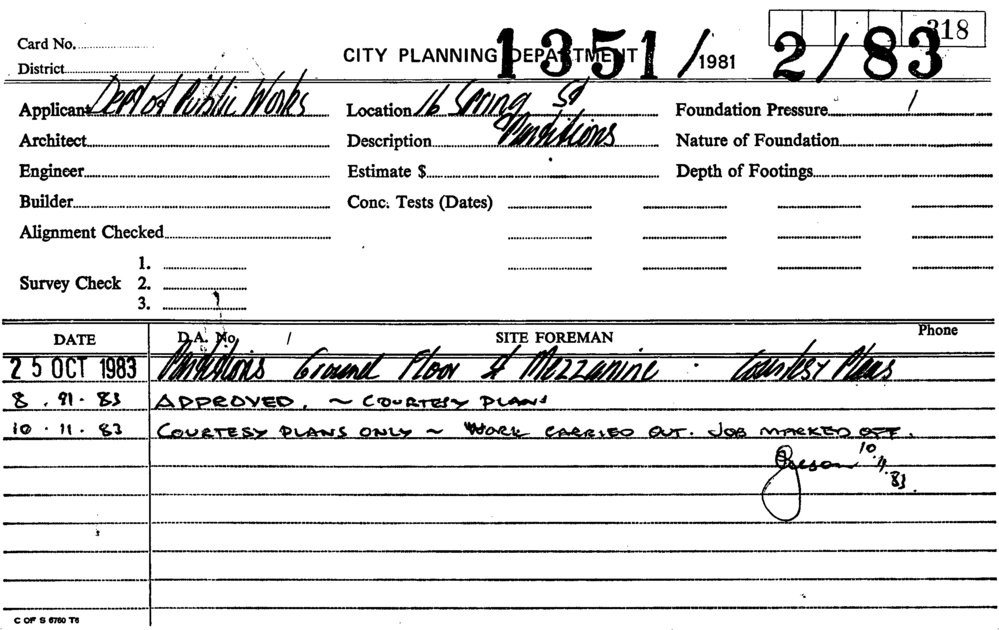 318
Card No.
CITY PLANNING DEPARTMENT 1351/1981 2/83
District
Applicant Dept of Public Works Location 16 Spring St Foundation Pressure
Architect Description Partitions Nature of Foundation
Engineer Estimate $ Depth of Footings
Builder Conc. Tests (Dates)
Alignment Checked
1.
Survey Check 2.
3.
DATE D.A. No. SITE FOREMAN Phone
25 OCT 1983 Partitions Ground Floor & Mezzanine - Courtesy Plans
8 . 11 . 83 APPROVED. ~ COURTESY PLANS
10 . 11 . 83 COURTESY PLANS ONLY ~ WORK CARRIED OUT. JOB MARKED OFF.
10.11.83
C OF S 6760 T6